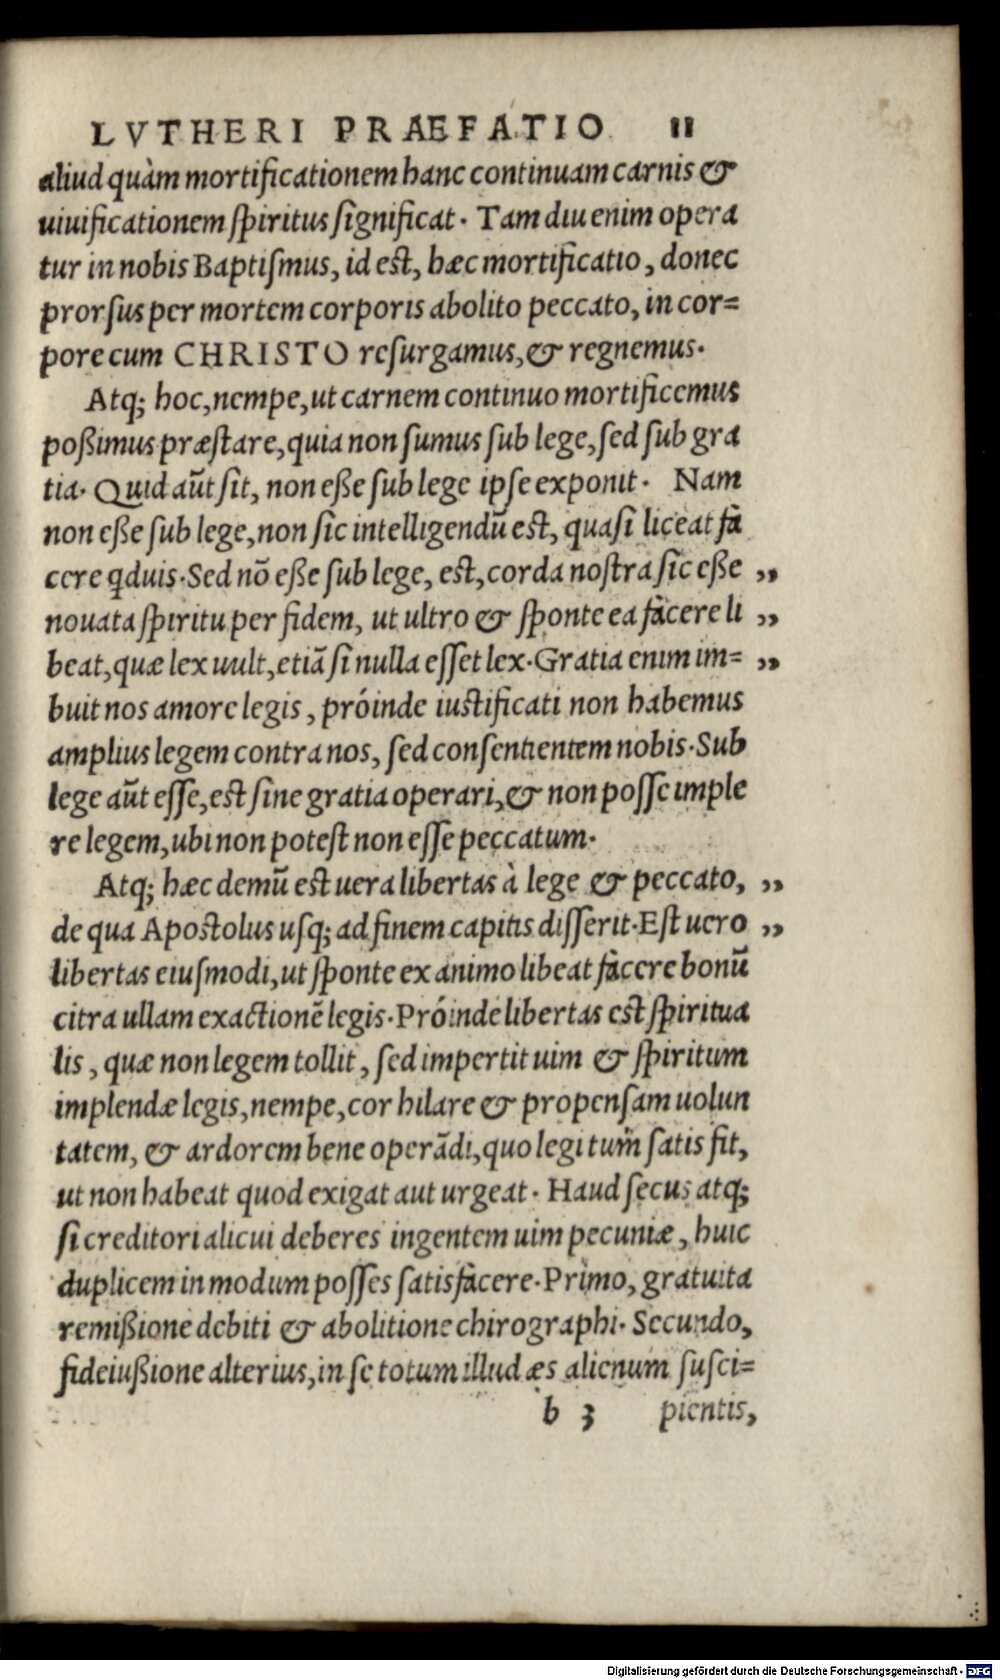 LVTHERI PRAEFATIO 11
aliud quàm mortificationem hanc continuam carnis &
uiuificationem ſpiritus ſignificat. Tam diu enim opera
tur in nobis Baptiſmus, id eſt, hæc mortificatio, donec
prorſus per mortem corporis abolito peccato, in cor=
pore cum CHRISTO reſurgamus, & regnemus.
Atq; hoc, nempe, ut carnem continuo mortificemus
poßimus præſtare, quia non ſumus ſub lege, ſed ſub gra
tia. Quid aūt ſit, non eße ſub lege ipſe exponit. Nam
non eße ſub lege, non ſic intelligendū eſt, quaſi liceat fa
cere qduis. Sed nō eße ſub lege, eſt, corda noſtra ſic eße „
nouata ſpiritu per fidem, ut ultro & ſponte ea facere li „
beat, quæ lex uult, etiā ſi nulla eſſet lex. Gratia enim im= „
buit nos amore legis, próinde iuſtificati non habemus
amplius legem contra nos, ſed conſentientem nobis. Sub
lege aūt eſſe, eſt ſine gratia operari, & non poſſe imple
re legem, ubi non poteſt non eſſe peccatum.
Atq; hæc demū eſt uera libertas à lege & peccato, „
de qua Apoſtolus uſq; ad finem capitis diſſerit. Eſt uero „
libertas eiuſmodi, ut ſponte ex animo libeat facere bonū
citra ullam exactionē legis. Próinde libertas eſt ſpiritua
lis, quæ non legem tollit, ſed impertit uim & ſpiritum
implendæ legis, nempe, cor hilare & propenſam uolun
tatem, & ardorem bene operādi, quo legi tum ſatis fit,
ut non habeat quod exigat aut urgeat. Haud ſecus atq;
ſi creditori alicui deberes ingentem uim pecuniæ, huic
duplicem in modum poſſes ſatisfacere. Primo, gratuita
remißione debiti & abolitione chirographi. Secundo,
fideiußione alterius, in ſe totum illud æs alienum ſuſci=
b 3 pientis,
Digitalisierung gefördert durch die Deutsche Forschungsgemeinschaft - DFG